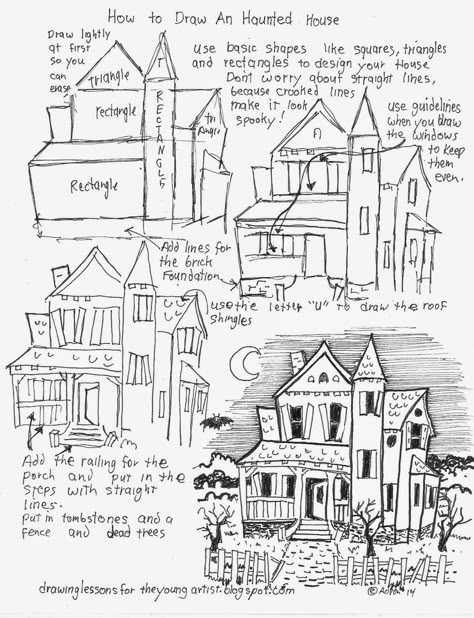 How to Draw An Haunted House
Draw lightly
at first
so you
can
erase
use basic shapes like squares, triangles
and rectangles to design your House
Don't worry about straight lines,
because crooked lines
make it look
spooky!
triangle
T
RECTANGLES
rectangle
tri
Angle
Rectangle
use guidelines
when you draw
the windows
to keep
them
even.
Add lines for
the brick
Foundation
use the letter "U" to draw the roof
shingles
Add the railing for the
porch and put in the
steps with straight
lines.
Put in tombstones and a
fence and dead trees
drawinglessonsfortheyoungartist.blogspot.com